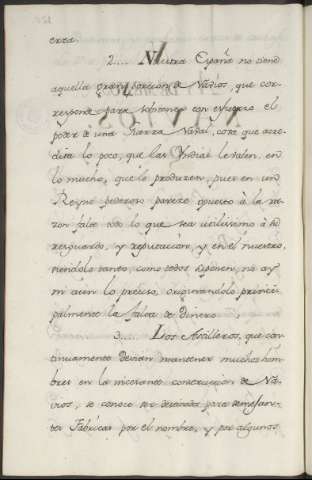 erra.
2.... Nuestra España no tiene
aquella gran porcion de Navios, que cor-
responde para sobstener con esfuerzo el
poder de una fuerza Naval, cosa que acre-
dita lo poco, que las Yndias le valen, en
lo mucho, que le produzen, pues en un
Reyno poderoso parece opuesto à la ra-
zon falte todo lo que sea utilissimo à su
resguardo, y reputacion, y en el nuestro,
siendolo tanto, como todos suponen, no ay
ni aun lo preciso, originandolo princi-
palmente la falta de dinero.
3.... Los Astilleros, que con-
tinuamente devian mantener muchos hom-
bres en la incesante construccion de Na-
vios, se conoce ser destinados para semejan-
tes Fabricas por el nombre, y por algunos